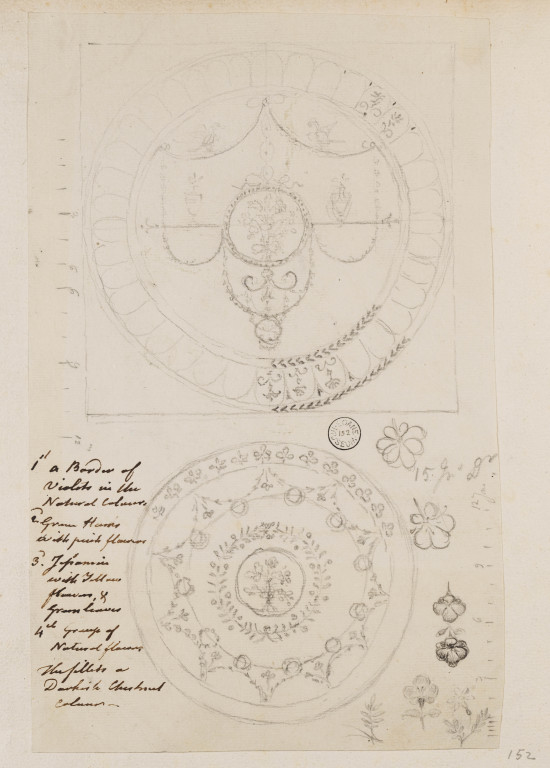 1st a Border of
Violets in the
Natural Colours
2d Green
with pink flowers
3d Jessamin
with Yellow
flowers, &
Green leaves
4th Group of
Natural flowers
The fillets a
Darkish Chestnut
Colour
SOANE
152
MUSEUM
15.
152